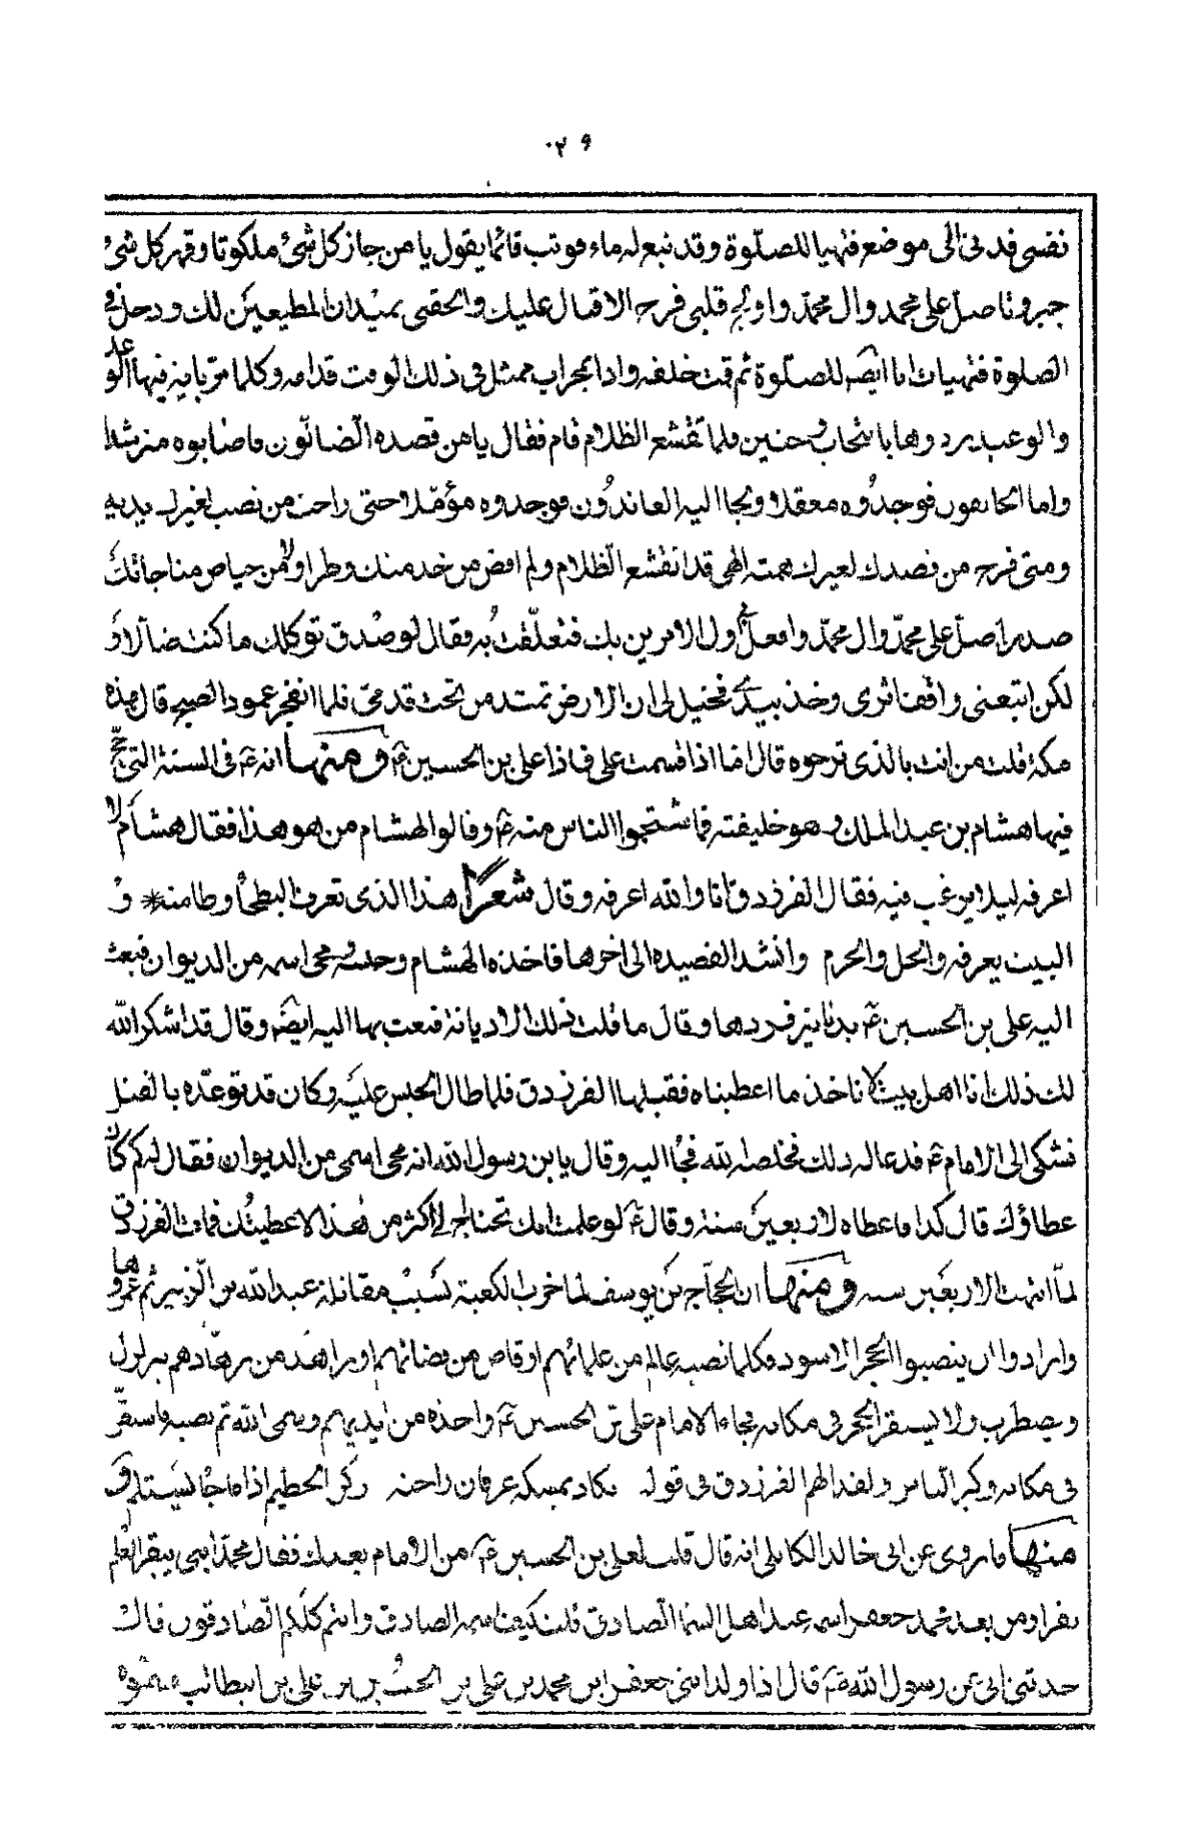 نفسى فدنى الى موضع فتهيا للصلوة وقد نبع له ماء فوثب قائما يقول يا من حاز كل شئ ملكوتا وقهر كل شئ
جبروتا صل على محمد وال محمد واولج قلبى فرح الاقبال عليك والحقنى بميدان المطيعين لك ودخل فى
الصلوة فتهيات انا ايضا للصلوة ثم قمت خلفه واذا بمحراب ممثل فى ذلك الوقت قدامه وكلما مر باية فيها الوعد
والوعيد يرددها بانتحاب وحنين فلما تقشع الظلام قام فقال يا من قصده الضالون فاصابوه مرشدا
وامه الخائفون فوجدوه معقلا ولجا اليه العاندون فوجدوه مؤملا حتى راحة من نصب لغيرك بدنه
ومتى فرح من قصدك لغيرك همته الهى قد انقشع الظلام ولم اقض من خدمتك وطرا ولا من حياض مناجاتك
صدرا صل على محمد وال محمد وافعل بى اولى الامرين بك فتعلقت به فقال لو صدق توكلك ما كنت ضالا و
لكن اتبعنى واقف اثرى واخذ بيدى فخيل لى ان الارض تمتد من تحت قدمى فلما انفجر عمود الصبح قال هذه
مكة قلت من انت بالذى ترجوه قال اما اذا قسمت على فانا على بن الحسين ع ومنها انه ع فى السنة التى حج
فيها هشام بن عبد الملك وهو خليفته فاستجهروا الناس منه ع وقالوا لهشام من هو هذا فقال هشام لا
اعرفه ليلا يرغب فيه فقال الفرزدق انا والله اعرفه وقال شعرا هذا الذى تعرف البطحاء وطاته * و
البيت يعرفه والحل والحرم وانشد القصيده الى اخرها فاخذه الهشام وحبسه ومحى اسمه من الديوان فبعث
اليه على بن الحسين ع بدنانير فردها وقال ما قلت ذلك الا ديانة فبعث بها اليه ايضا وقال قد شكر الله
لك ذلك انا اهل بيت لا ناخذ ما اعطيناه فقبلها الفرزدق فلما طال الحبس عليه وكان قد توعده بالقتل
فشكى الى الامام ع فدعا له ذلك فخلصه الله فجا اليه وقال يا بن رسول الله انه محى اسمى من الديوان فقال له كم كان
عطاؤك قال كذا فاعطاه لاربعين سنة وقال ع لو علمت انك تحتاج الى اكثر من هذا لاعطيتك فمات الفرزدق
لما انتهت الاربعين سنه ومنها ان الحجاج بن يوسف لما خرب الكعبة بسبب مقاتلة عبد الله بن الزبير ثم عمروها
وارادوا ان ينصبوا الحجر الاسود فكلما نصبه عالم من علمائهم او قاض من قضاتهم او زاهد من زهادهم يتزلزل
ويضطرب ولا يستقر الحجر فى مكانه فجاء الامام على بن الحسين ع واخذه من ايديهم وسمى الله ثم نصبه فاستقر
فى مكانه وكبر الناس ولقد الهم الفرزدق فى قوله يكاد يمسكه عرفان راحته ركن الحطيم اذا ما جا يستلم و
منها ما روى عن ابى خالد الكابلى انه قال قلت لعلى بن الحسين ع من الامام بعدك فقال محمد ابنى يبقر العلم
بقرا ومن بعد محمد جعفر اسمه عند اهل السما الصادق قلت كيف اسمه الصادق وانتم كلكم الصادقون قال
حدثنى ابى عن رسول الله ص قال اذا ولد ابنى جعفر بن محمد بن على بن الحسين بن على بن ابيطالب فسموه